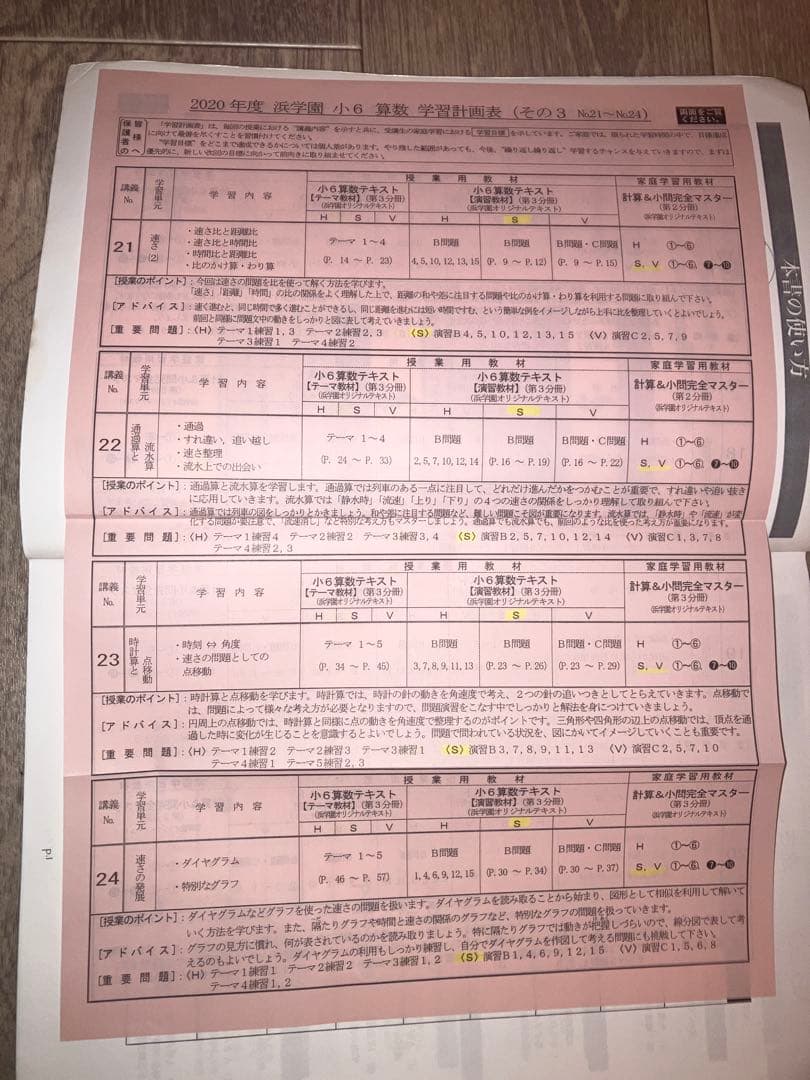 2020年度 浜学園 小6 算数 学習計画表 (その3 No.21～No.24)
両面をご覧ください。
保護者の皆様へ
「学習計画表」は、毎回の授業における"講義内容"を示すと共に、受講生の家庭学習における 学習目標 を示しています。ご家庭では、限られた学習時間の中で、目標達成
に向けて最善を尽くすことを習慣付けてください。
"学習目標"をどこまで達成できるかについては個人差があります。やり残した範囲があっても、今後、"繰り返し繰り返し"学習するチャンスを与えていきますので、まずは
優先的に、新しい次回の目標に向かって前向きに取り組ませてください。
講義No. 学習単元 学習内容 授業用教材 家庭学習用教材
小6算数テキスト【テーマ教材】(第3分冊)(浜学園オリジナルテキスト) 小6算数テキスト【演習教材】(第3分冊)(浜学園オリジナルテキスト) 計算&小問完全マスター(第2分冊)(浜学園オリジナルテキスト)
H S V H S V
21 速さ(2)
・速さ比と距離比
・速さ比と時間比
・時間比と距離比
・比のかけ算・わり算
テーマ 1～4 (P. 14 ～ P. 23)
B問題 4, 5, 10, 12, 13, 15
B問題 (P. 9 ～ P. 12)
B問題・C問題 (P. 9 ～ P. 15)
H ①～⑥
S, V ①～⑥, ❼～❿
[授業のポイント]:今回は速さの問題を比を使って解く方法を学びます。
「速さ」「距離」「時間」の比の関係をよく理解した上で、距離の和や差に注目する問題や比のかけ算・わり算を利用する問題に取り組んで下さい。
[アドバイス]:速く進むと、同じ時間で多く進むことができるし、同じ距離を進むには短い時間ですむ、という簡単な例をイメージしながら上手に比を整理していくとよいでしょう。
前回と同様に問題文中の動きをしっかりと図に表して考えていきましょう。
[重要問題]:〈H〉テーマ1練習1, 3 テーマ2練習2, 3 〈S〉演習B4, 5, 10, 12, 13, 15 〈V〉演習C2, 5, 7, 9
テーマ3練習1 テーマ4練習2
講義No. 学習単元 学習内容 授業用教材 家庭学習用教材
小6算数テキスト【テーマ教材】(第3分冊)(浜学園オリジナルテキスト) 小6算数テキスト【演習教材】(第3分冊)(浜学園オリジナルテキスト) 計算&小問完全マスター(第2分冊)(浜学園オリジナルテキスト)
H S V H S V
22 通過算と流水算
・通過
・すれ違い、追い越し
・速さ整理
・流水上での出会い
テーマ 1～4 (P. 24 ～ P. 33)
B問題 2, 5, 7, 10, 12, 14
B問題 (P. 16 ～ P. 19)
B問題・C問題 (P. 16 ～ P. 22)
H ①～⑥
S, V ①～⑥, ❼～❿
[授業のポイント]:通過算と流水算を学習します。通過算では列車のある一点に注目して、どれだけ進んだかをつかむことが重要で、すれ違いや追い抜き
に応用していきます。流水算では「静水時」「流速」「上り」「下り」の4つの速さの関係をしっかり理解して取り組んで下さい。
[アドバイス]:通過算では列車の図をしっかりとかきましょう。和や差に注目する問題など、難しい問題こそ図が重要になります。流水算では、「静水時」や「流速」が変
化する問題が要注意で、「流速消し」など特別な考え方もマスターしましょう。通過算でも流水算でも、前回のような比を使った考え方が重要になります。
[重要問題]:〈H〉テーマ1練習4 テーマ2練習2 テーマ3練習3, 4 〈S〉演習B2, 5, 7, 10, 12, 14 〈V〉演習C1, 3, 7, 8
テーマ4練習2, 3
講義No. 学習単元 学習内容 授業用教材 家庭学習用教材
小6算数テキスト【テーマ教材】(第3分冊)(浜学園オリジナルテキスト) 小6算数テキスト【演習教材】(第3分冊)(浜学園オリジナルテキスト) 計算&小問完全マスター(第3分冊)(浜学園オリジナルテキスト)
H S V H S V
23 時計算と点移動
・時刻 ⇔ 角度
・速さの問題としての
点移動
テーマ 1～5 (P. 34 ～ P. 45)
B問題 3, 7, 8, 9, 11, 13
B問題 (P. 23 ～ P. 26)
B問題・C問題 (P. 23 ～ P. 29)
H ①～⑥
S, V ①～⑥, ❼～❿
[授業のポイント]:時計算と点移動を学びます。時計算では、時計の針の動きを角速度で考え、2つの針の追いつきとしてとらえていきます。点移動で
は、問題によって様々な考え方が必要となりますので、問題演習をこなす中でしっかりと解法を身につけていきましょう。
[アドバイス]:円周上の点移動では、時計算と同様に点の動きを角速度で整理するのがポイントです。三角形や四角形の辺上の点移動では、頂点を通
過した時に変化が生じることを意識するとよいでしょう。問題で問われている状況を、図にかいてイメージしていくことも重要です。
[重要問題]:〈H〉テーマ1練習2 テーマ2練習3 テーマ3練習1 〈S〉演習B3, 7, 8, 9, 11, 13 〈V〉演習C2, 5, 7, 10
テーマ4練習1 テーマ5練習2, 3
講義No. 学習単元 学習内容 授業用教材 家庭学習用教材
小6算数テキスト【テーマ教材】(第3分冊)(浜学園オリジナルテキスト) 小6算数テキスト【演習教材】(第3分冊)(浜学園オリジナルテキスト) 計算&小問完全マスター(第3分冊)(浜学園オリジナルテキスト)
H S V H S V
24 速さの発展
・ダイヤグラム
・特別なグラフ
テーマ 1～5 (P. 46 ～ P. 57)
B問題 1, 4, 6, 9, 12, 15
B問題 (P. 30 ～ P. 34)
B問題・C問題 (P. 30 ～ P. 37)
H ①～⑥
S, V ①～⑥, ❼～❿
[授業のポイント]:ダイヤグラムなどグラフを使った速さの問題を扱います。ダイヤグラムを読み取ることから始まり、図形として相似を利用して解いて
いく方法を学びます。また、隔たりグラフや時間と速さの関係のグラフなど、特別なグラフの問題を扱っていきます。
[アドバイス]:グラフの見方に慣れ、何が表されているのかを読み取りましょう。特に隔たりグラフでは動きが把握しづらいので、線分図で表して考
えるのもよいでしょう。ダイヤグラムの利用もしっかり練習し、自分でダイヤグラムを作図して考える問題にも挑戦して下さい。
[重要問題]:〈H〉テーマ1練習1 テーマ2練習2 テーマ3練習1, 2 〈S〉演習B1, 4, 6, 9, 12, 15 〈V〉演習C1, 5, 6, 8
テーマ4練習1, 2
本書の使い方
P.1